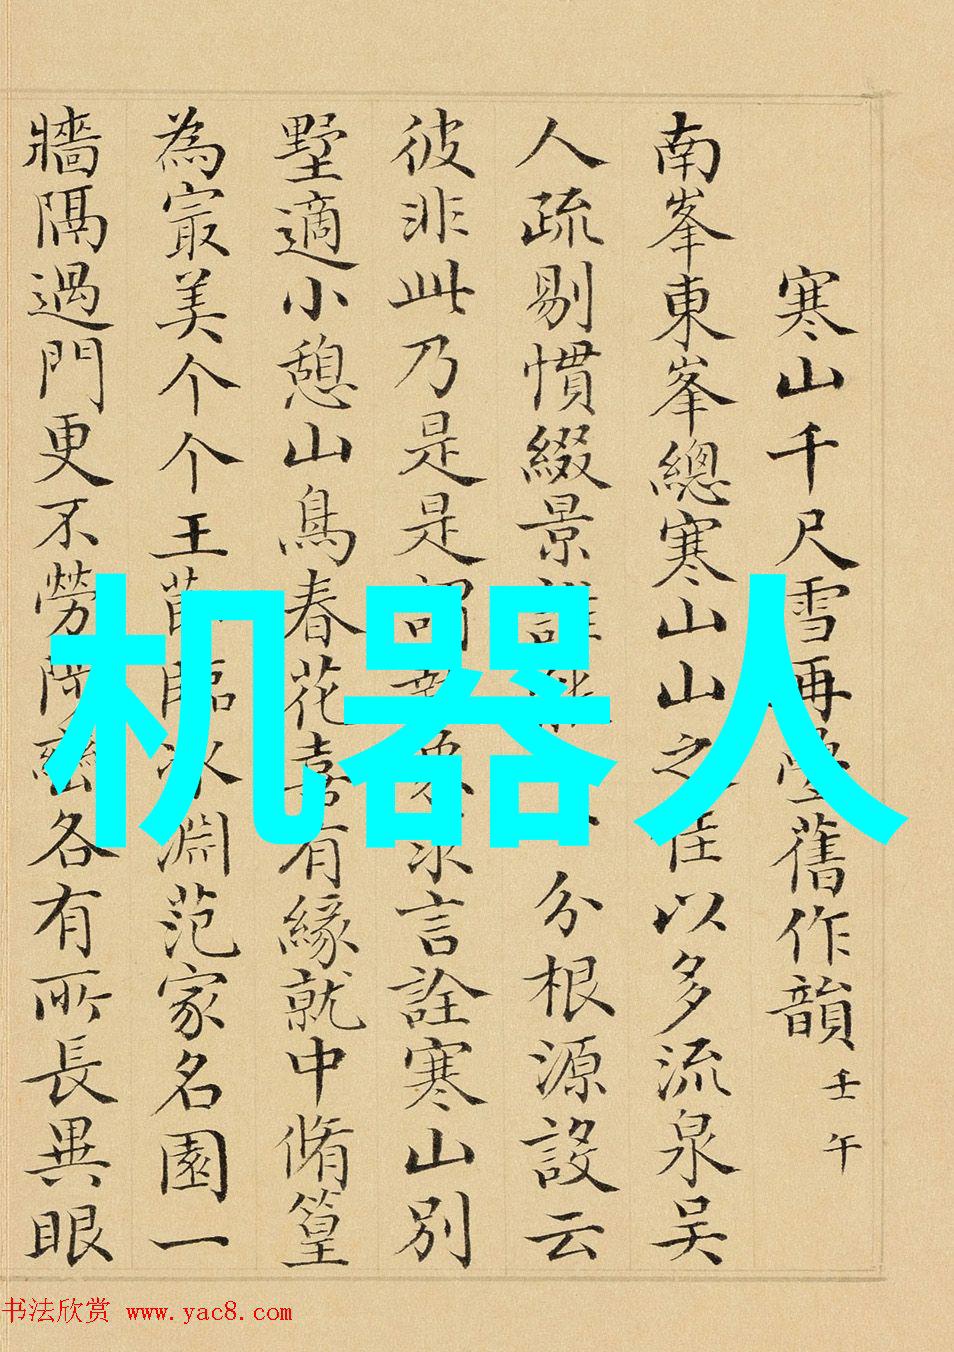 寒山千尺雪再疊舊作韻 壬午
南峯東峯總寒山山之佳以多流泉吴
人疏剔慣綴景誰 分根源設云
彼非此乃是是謂 求言詮寒山別
墅適小憩山鳥春花喜有緣就中脩篁
為冣美个个王 臨冰淵范家名園一
牆隔過門更不勞 各有所長異眼
机器人
书法欣赏 www.yac8.com